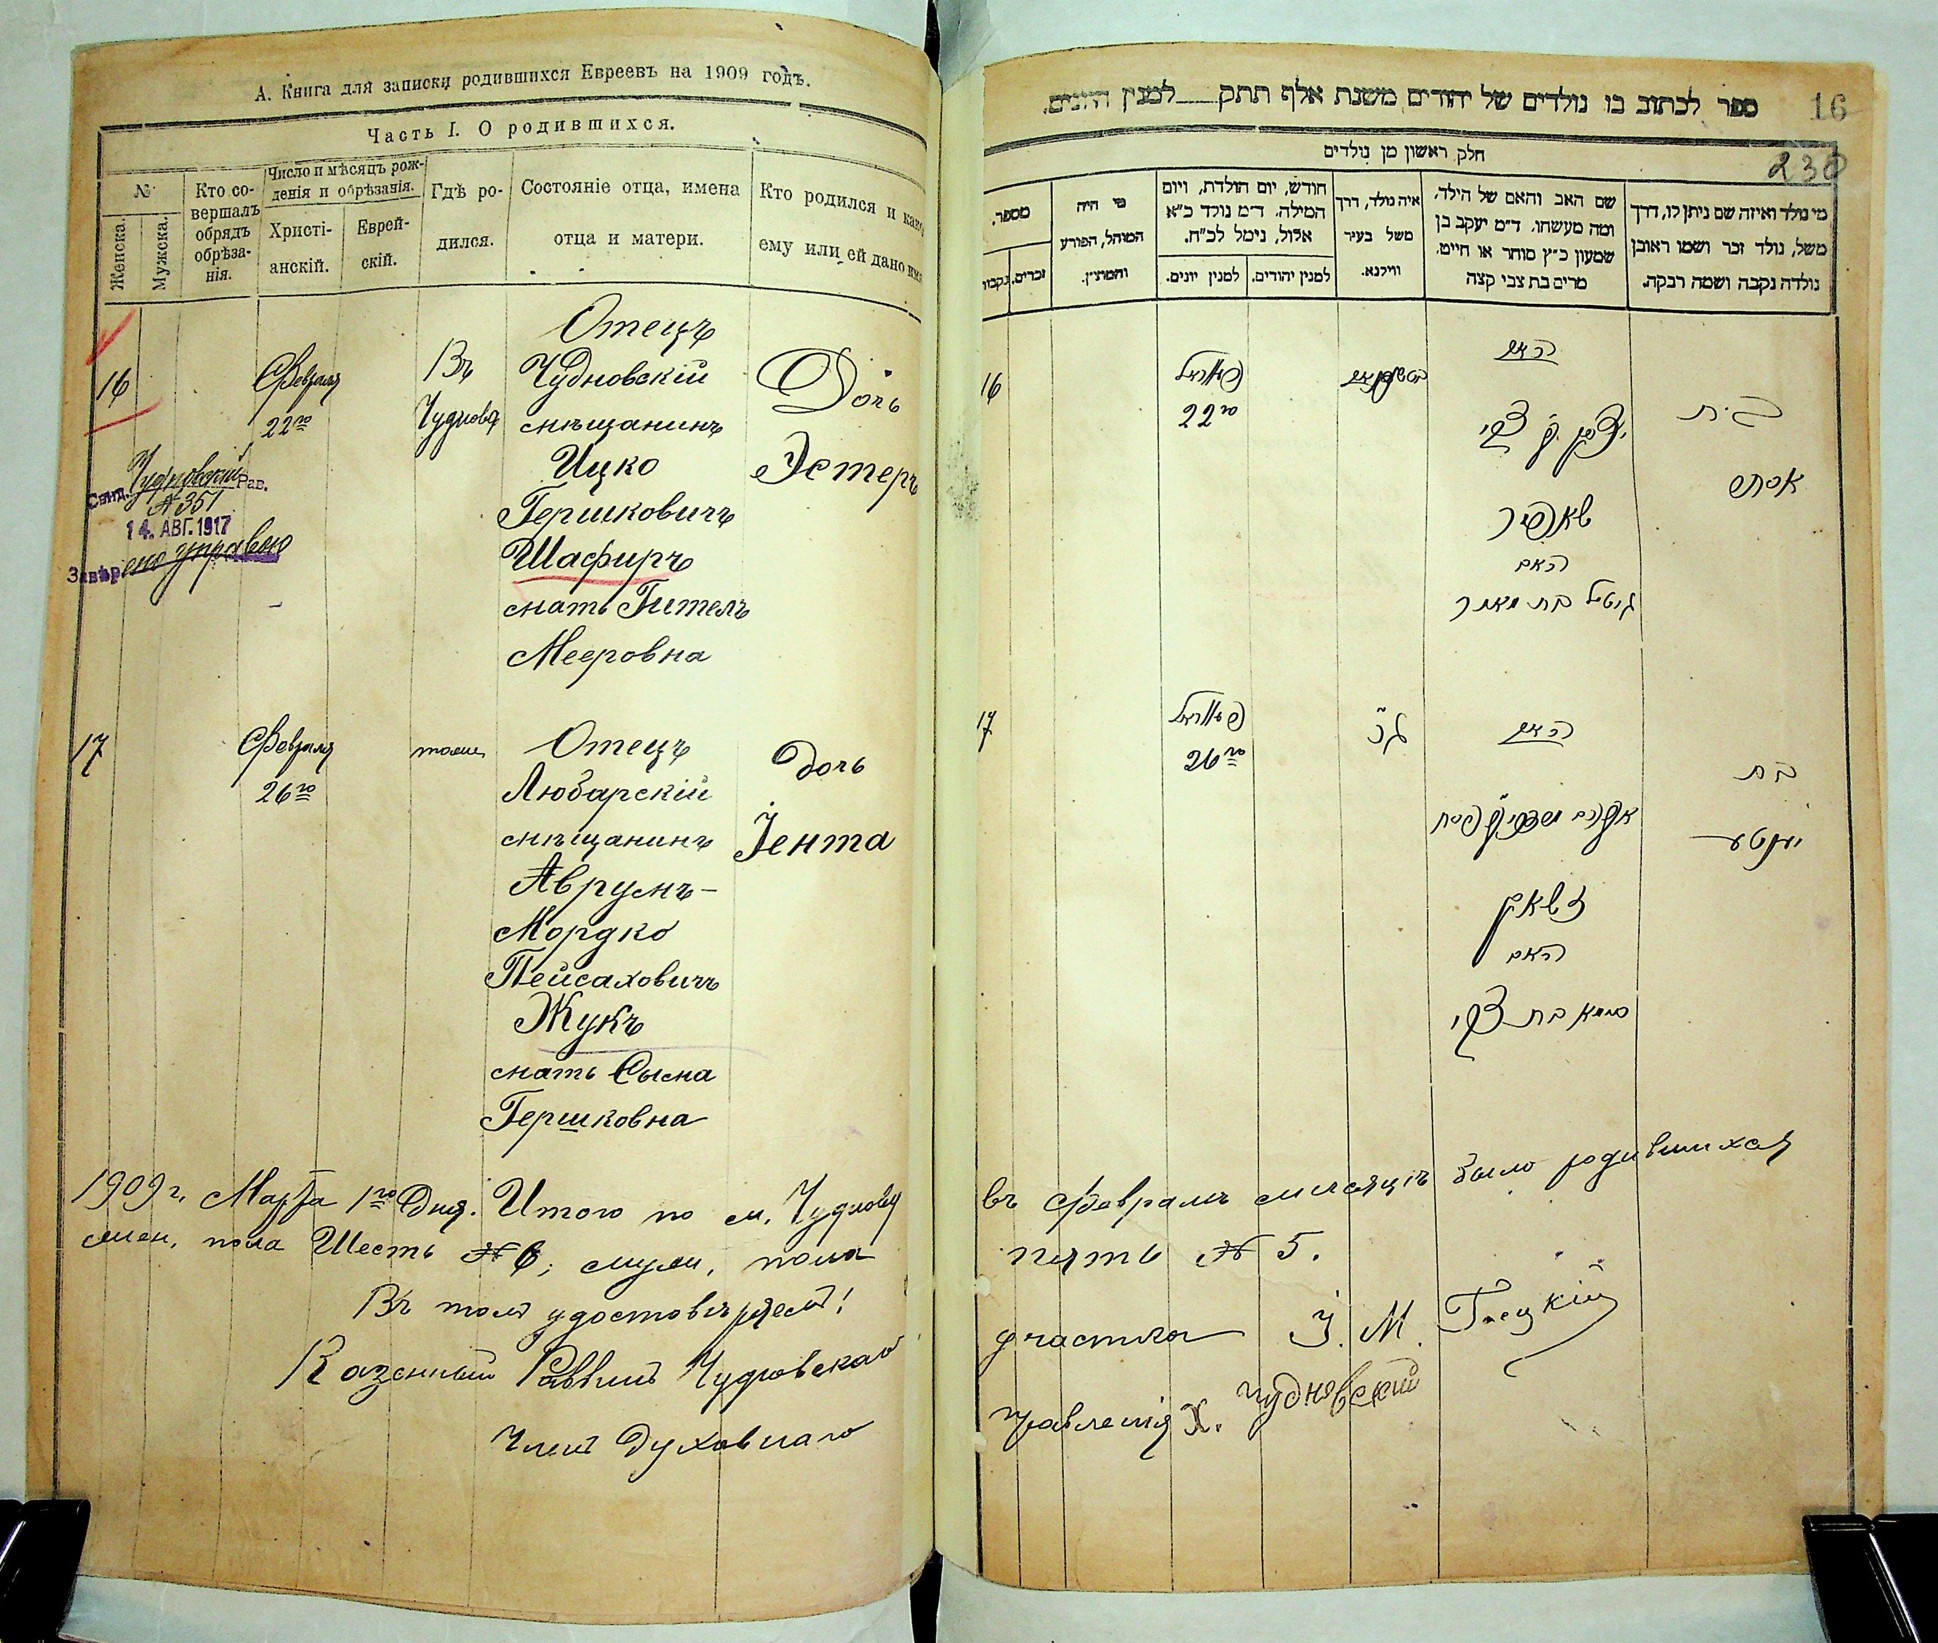 А. Книга для записки родившихся Евреевъ на 1909 годъ.
Часть I. О родившихся.
№
Женска.
Мужска.
Кто со-
вершалъ
обрядъ
обрѣза-
нія.
Число и мѣсяцъ рож-
денія и обрѣзанія.
Христі-
анскій.
Еврей-
скій.
Гдѣ ро-
дился.
Состояніе отца, имена
отца и матери.
Кто родился и како
ему или ей дано имя
16
Февраля
22го
Въ
Чудновѣ
Отецъ
Чудновскій
мѣщанинъ
Ицко
Гершковичъ
Шафиръ
мать Гителъ
Мееровна
Дочь
Эстеръ
Свид. Чудновскій Рав.
№ 351
14. АВГ. 1917
Завѣрено управою
17
Февраля
26го
тоже
Отецъ
Любарскій
мѣщанинъ
Аврумъ-
Мордко
Пейсаховичъ
Жукъ
мать Сыма
Гершковна
дочь
Іента
1909 г. Марта 1го Дня. Итого по м. Чуднову
жен. пола Шесть № 6; муж. пола
Въ томъ удостовѣряемъ!
Казенный Раввинъ Чудновскаго
Членъ Духовнаго
ספר לכתוב בו נולדים של יהודים משנת אלף תתק לממנין היונים.
16
230
חלק ראשון מן נולדים
מספר.
זכרים.
נקבות
מי היה
המוהל, הפורע
והמוצץ.
חודש, יום הולדת, ויום
המילה. ד״מ נולד כ״א
אלול, נימל לכ״ח.
למנין יונים.
למנין יהודים.
איה נולד, דרך
משל בעיר
ווילנא.
שם האב והאם של הילד,
ומה מעשהו. ד״מ יעקב בן
שמעון כ״ץ סוחר או חייט.
מרים בת צבי קצה
מי נולד ואיזה שם ניתן לו, דרך
משל, נולד זכר ושמו ראובן
נולדה נקבה ושמה רבקה.
16
פעווראל
22го
האב
יצחק בן צבי
שאפיר
האם
גיטיל בת מאיר
בת
אסתר
17
פעווראל
26го
האב
אברהם מרדכי בן פסח
זשאק
האם
סימא בת צבי
בת
יענטע
въ Февралѣ мѣсяцѣ было родившихся
пять № 5.
участка І. М.
правленія Х. Чудновскій